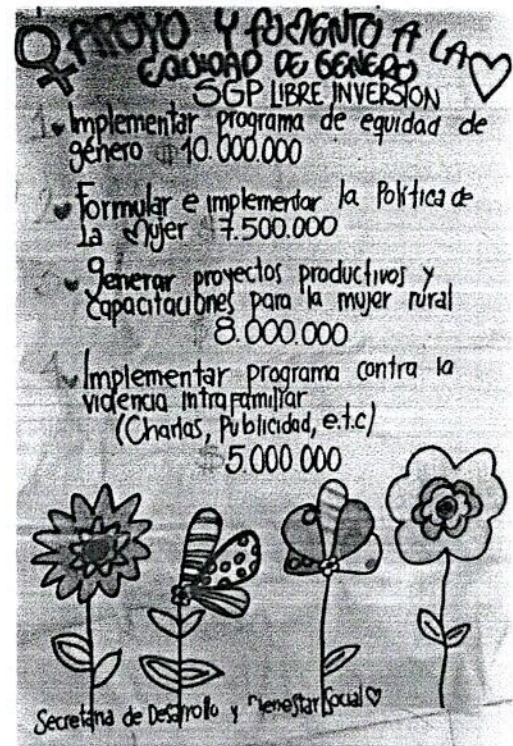 APOYO Y FOMENTO A LA
EQUIDAD DE GENERO
SGP LIBRE INVERSION
1. Implementar programa de equidad de
género $10.000.000
2. Formular e implementar la Política de
La Mujer $7.500.000
3. Generar proyectos productivos y
capacitaciones para la mujer rural
8.000.000
4. Implementar programa contra la
violencia intrafamiliar
(Charlas, Publicidad, e.t.c)
$5.000 000
Secretaria de Desarrollo y Bienestar Social